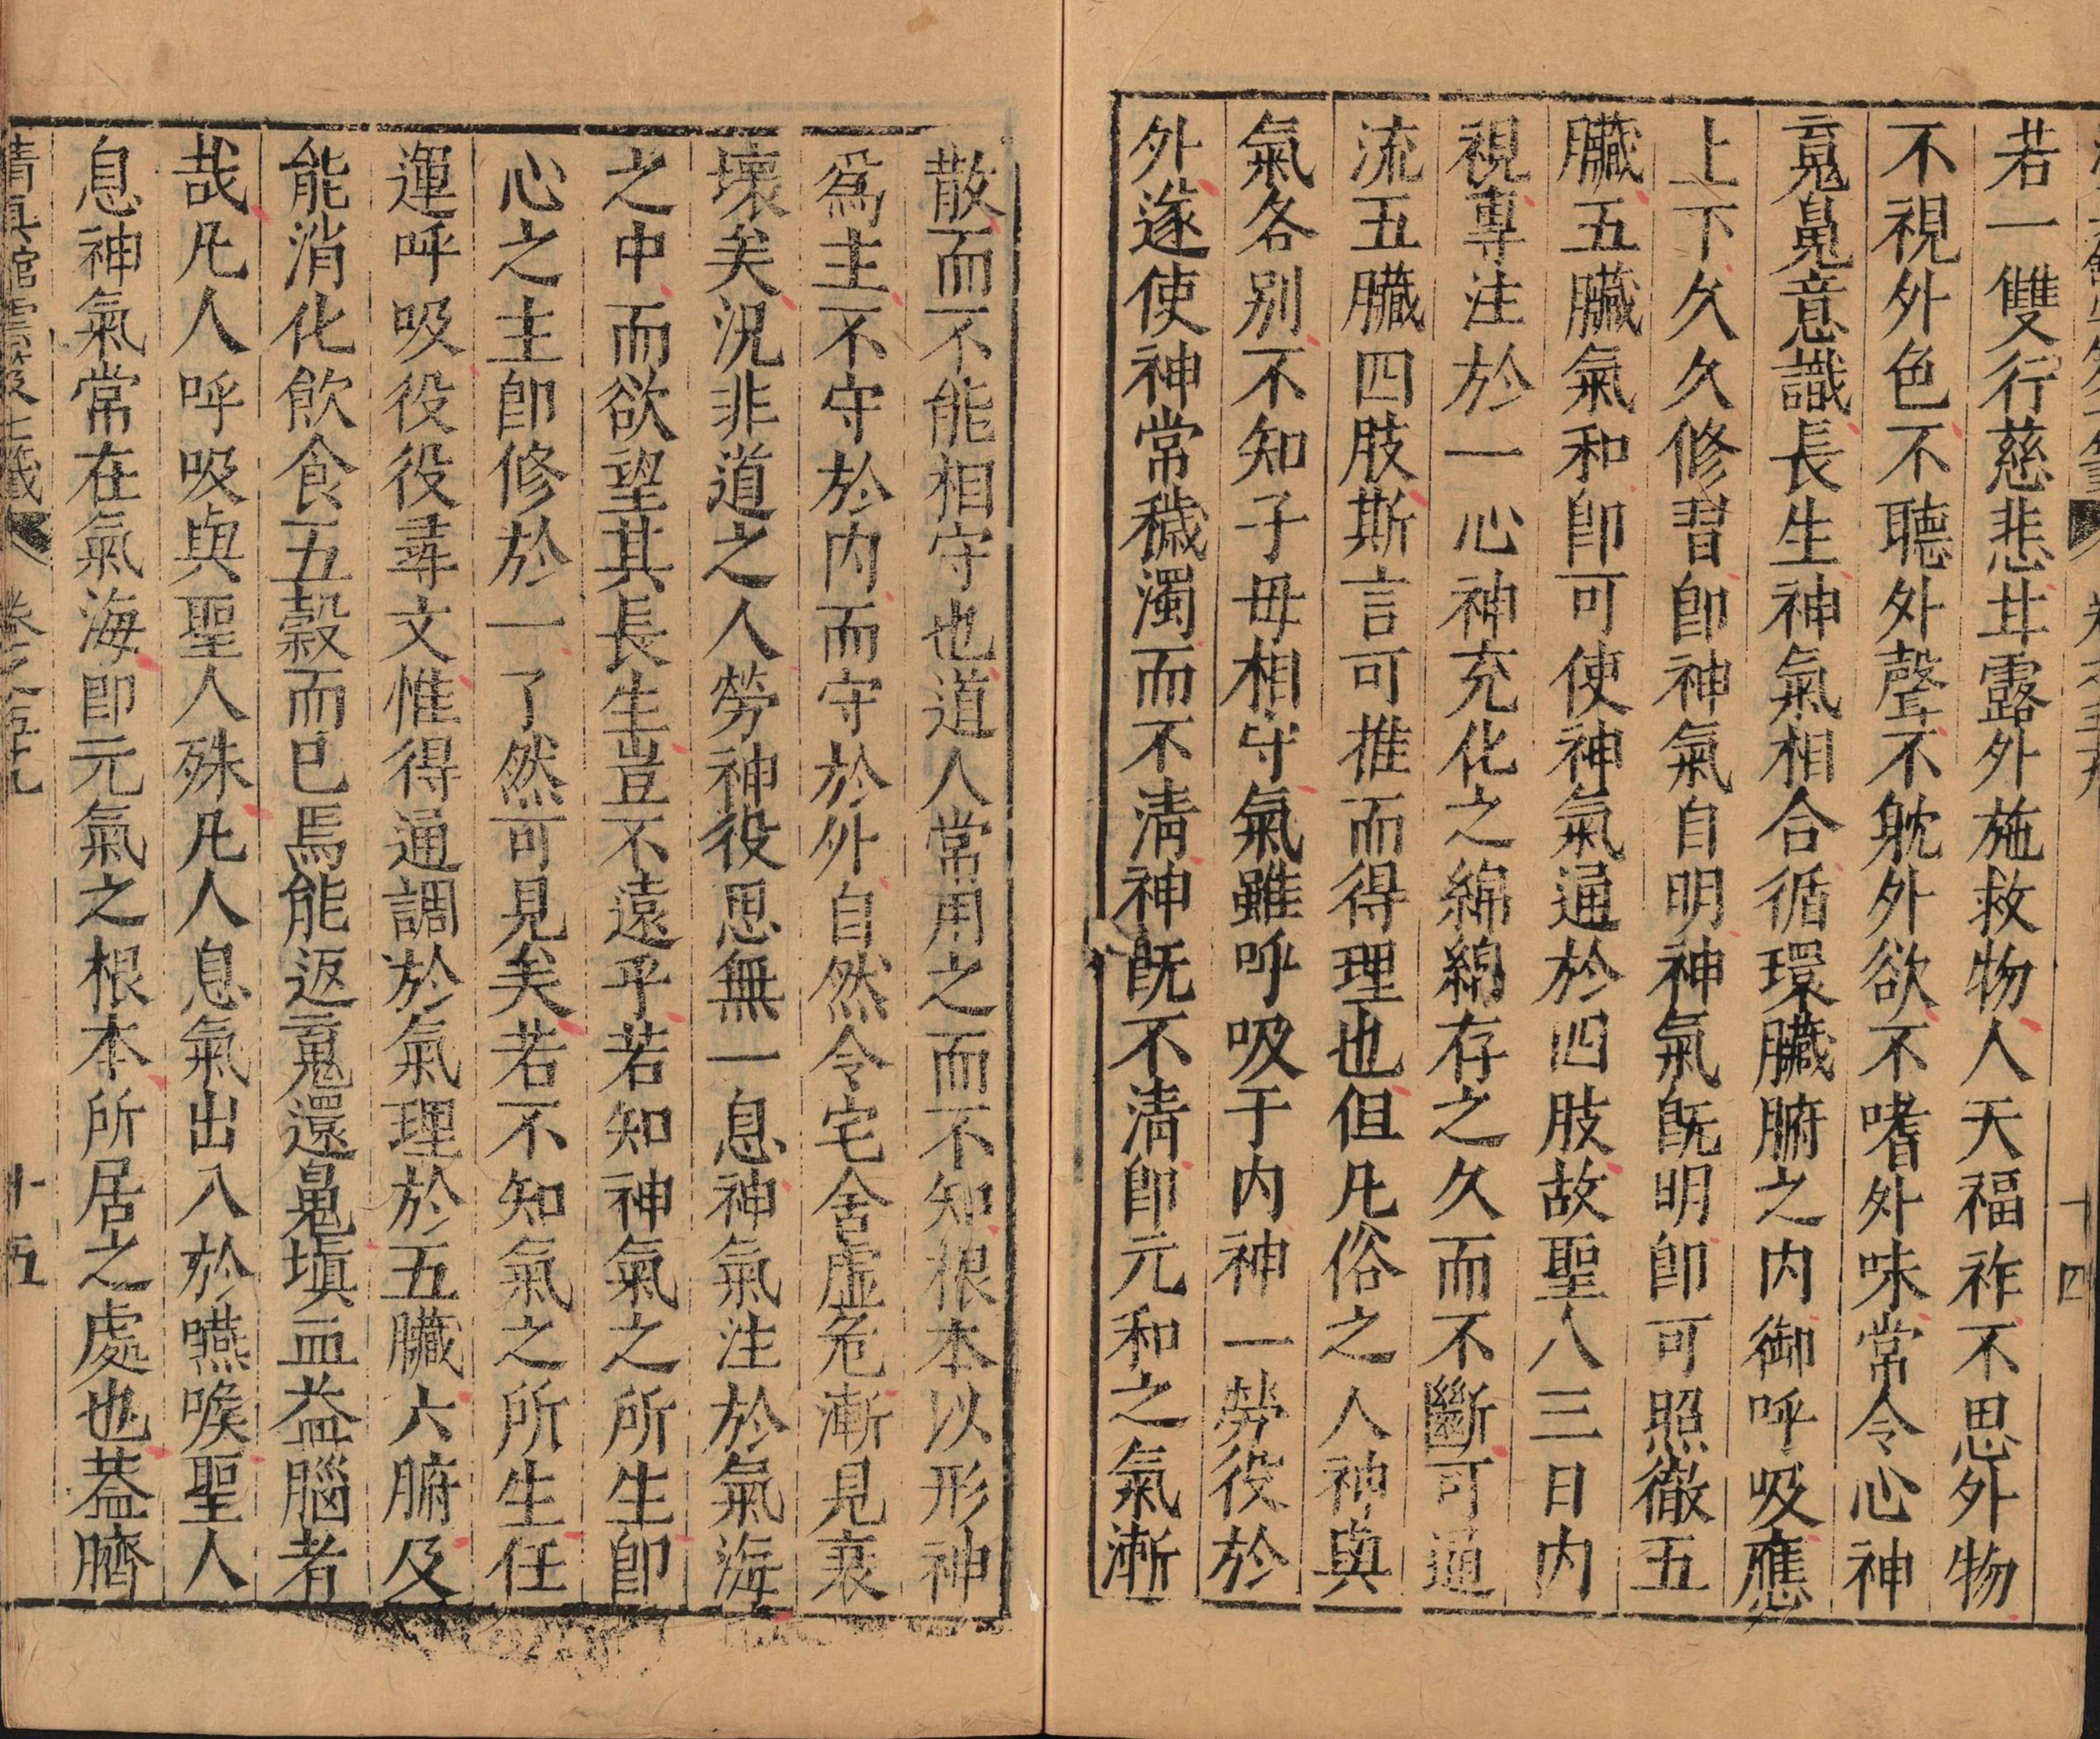 若一雙行慈悲甘露外施救物人天福祚不思外物
不視外色不聽外聲不躭外欲不嗜外味常令心神
䰟鬽意識長生神氣相合循環臟腑之内御呼吸應
上下久久修習卽神氣自明神氣旣明卽可照徹五
臟五臟氣和卽可使神氣通於四肢故聖人三日内
視專注於一心神充化之綿綿存之久而不斷可通
流五臟四肢斯言可推而得理也但凡俗之人神與
氣各别不知子母相守氣雖呼吸于内神一勞役於
外遂使神常穢濁而不清神旣不清卽元和之氣漸
散而不能相守也道人常用之而不知根本以形神
爲主不守於内而守於外自然令宅舍虛危漸見衰
壞矣況非道之人勞神役思無一息神氣注於氣海
之中而欲望其長生豈不遠乎若知神氣之所生卽
心之主卽修於一了然可見矣若不知氣之所生任
運呼吸役役尋文惟得通調於氣理於五臟六腑及
能消化飲食五穀而已焉能返䰟還鬽塡血益腦者
哉凡人呼吸與聖人殊凡人息氣出入於嚥喉聖人
息神氣常在氣海卽元氣之根本所居之處也葢臍
清眞館雲笈七籤
卷之五十九
十五
十四